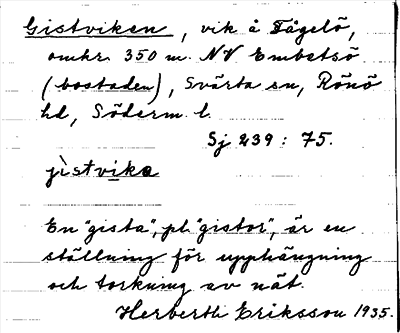 Gistviken, vik å Fågelö,
omkr. 350 m. NV Embetsö
(bostaden), Svärta sn, Rönö
hd, Söderm. l.
Sj 239 : 75.
jìstvika
En "gista", pl "gistor", är en
ställning för upphängning
och torkning av nät.
Herberth Eriksson 1935.